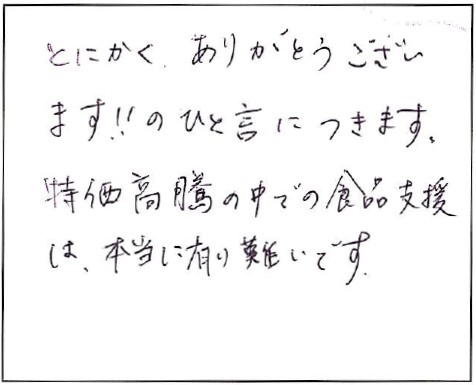 とにかく、ありがとうござい
ます!!のひと言につきます。
特価高騰の中での食品支援
は、本当に有り難いです。